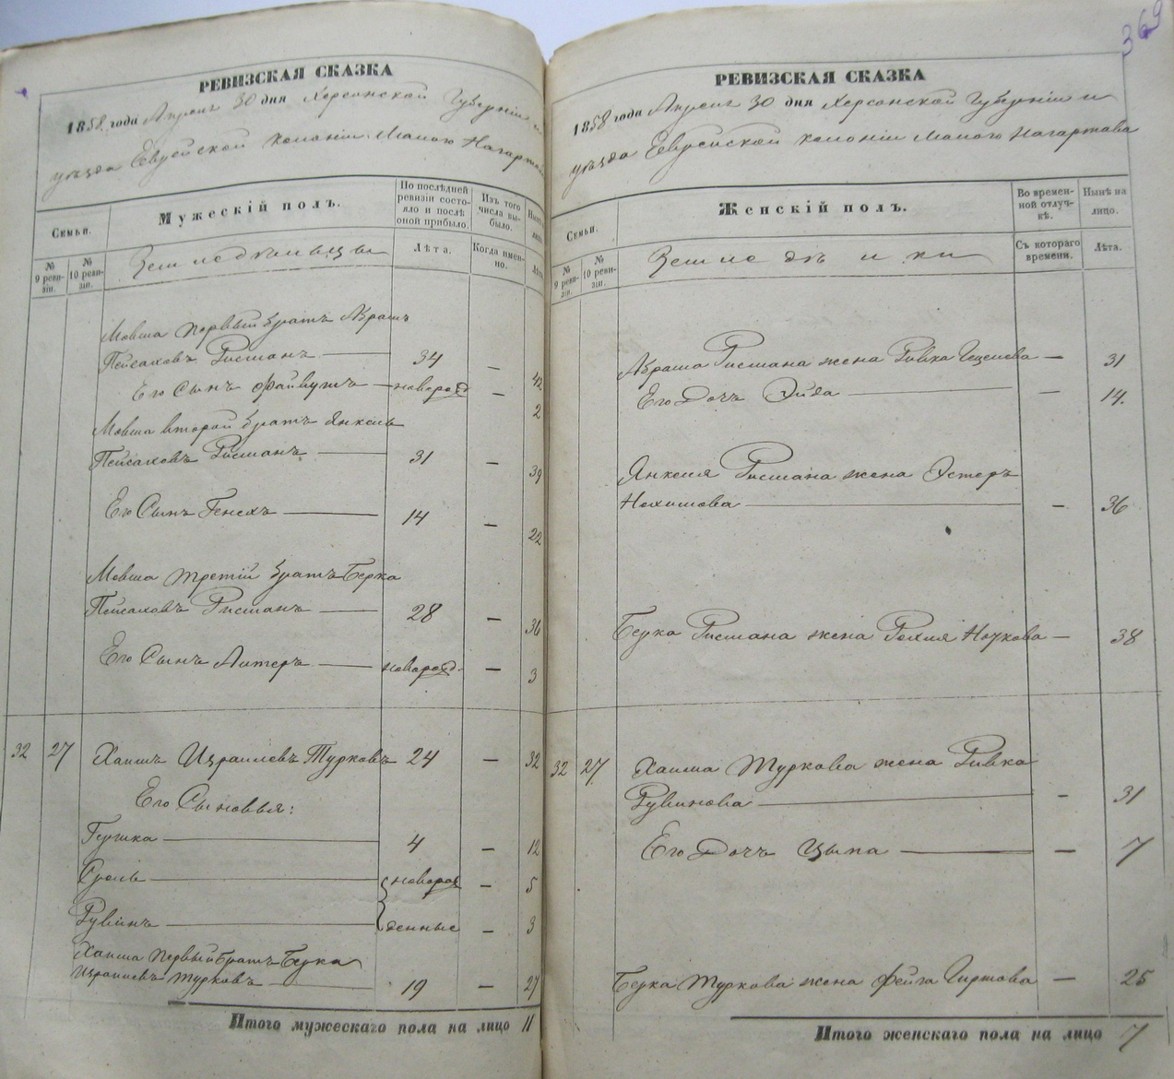 369
РЕВИЗСКАЯ СКАЗКА
1858 года Апреля 30 дня Херсонской Губерніи и
уѣзда Еврейской колоніи Малого Нагартова
Семьи.
№ 9 ревизіи.
№ 10 ревизіи.
Мужескій полъ.
По послѣдней ревизіи состояло и послѣ оной прибыло.
Изъ того числа выбыло.
Лѣта.
Когда именно.
Лѣта
Земледѣльцы
Мовша первый братъ Абрамъ
Пейсаховъ Рисманъ 34 — 42
Его Сынъ Файвушъ новорожд — 2
Мовша второй братъ Янкель
Пейсаховъ Рисманъ 31 — 39
Его Сынъ Генехъ 14 — 22
Мовша третій братъ Берка
Пейсаховъ Рисманъ 28 — 36
Его Сынъ Литеръ новорожд. — 3
32 27 Хаимъ Израилевъ Турковъ 24 — 32
Его Сыновья:
Гершка 4 — 12
Сроль новорож — 5
Рувинъ денные — 3
Хаима первый братъ Берка
Израилевъ Турковъ 19 — 27
Итого мужескаго пола на лицо 11
РЕВИЗСКАЯ СКАЗКА
1858 года Апреля 30 дня Херсонской Губерніи и
уѣзда Еврейской колоніи Малого Нагартова
Семьи.
№ 9 ревизіи.
№ 10 ревизіи.
Женскій полъ.
Во временной отлучкѣ.
Нынѣ на лицо.
Съ котораго времени.
Лѣта.
Земледѣлки
Абрама Рисмана жена Ривка — 31
Его Дочь Эйда — 14.
Янкеля Рисмана жена Эстеръ
Нохимова — 36
Берка Рисмана жена Рохля — 38
32 27. Хаима Туркова жена Ривка
Рувинова — 31
Его Дочь Цыпа — 7
Берка Туркова жена Фейга Гиршова — 25
Итого женскаго пола на лицо 7